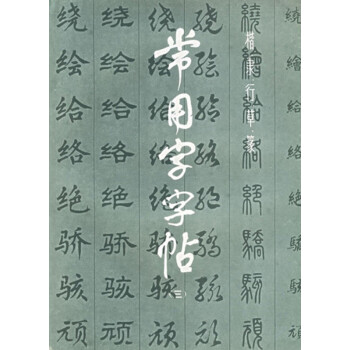 常用字字帖
(三)
楷隶行草篆
绕绘给络绝骄骇顽
绕绘给络绝骄骇顽
绕绘给络绝骄骇顽
绕绘给络绝骄骇顽
繞繪給絡絕驕駭頑